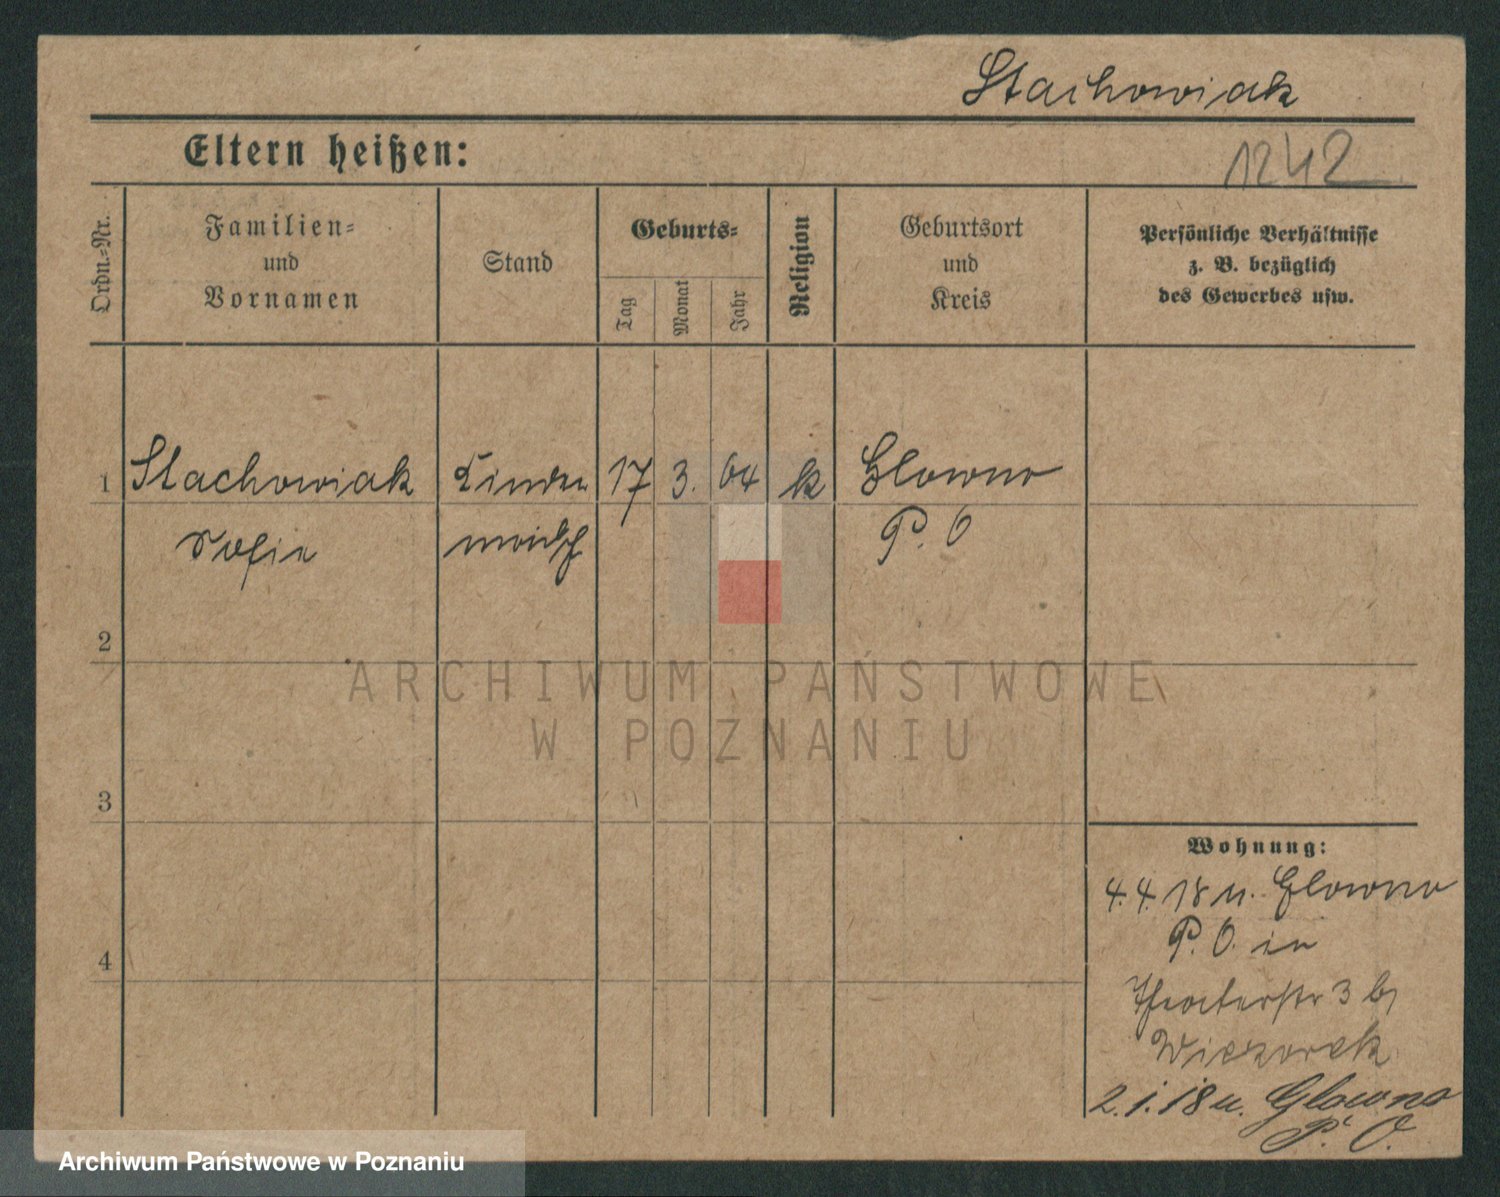 Stachowiak
Eltern heißen:
1242
Ordn.-Nr.
Familien-
und
Vornamen
Stand
Geburts-
Tag
Monat
Jahr
Religion
Geburtsort
und
Kreis
Persönliche Verhältnisse
z. B. bezüglich
des Gewerbes usw.
1 Stachowiak 17 3. 64 k Glowno
Sofie P. O
2
ARCHIWUM PAŃSTWOWE
W POZNANIU
3
Wohnung:
4.4.18 u. Glowno
P. O. in
4
Theaterstr 3 b/
Wiezorek
2.1.18 u. Glowno
P. O.
Archiwum Państwowe w Poznaniu